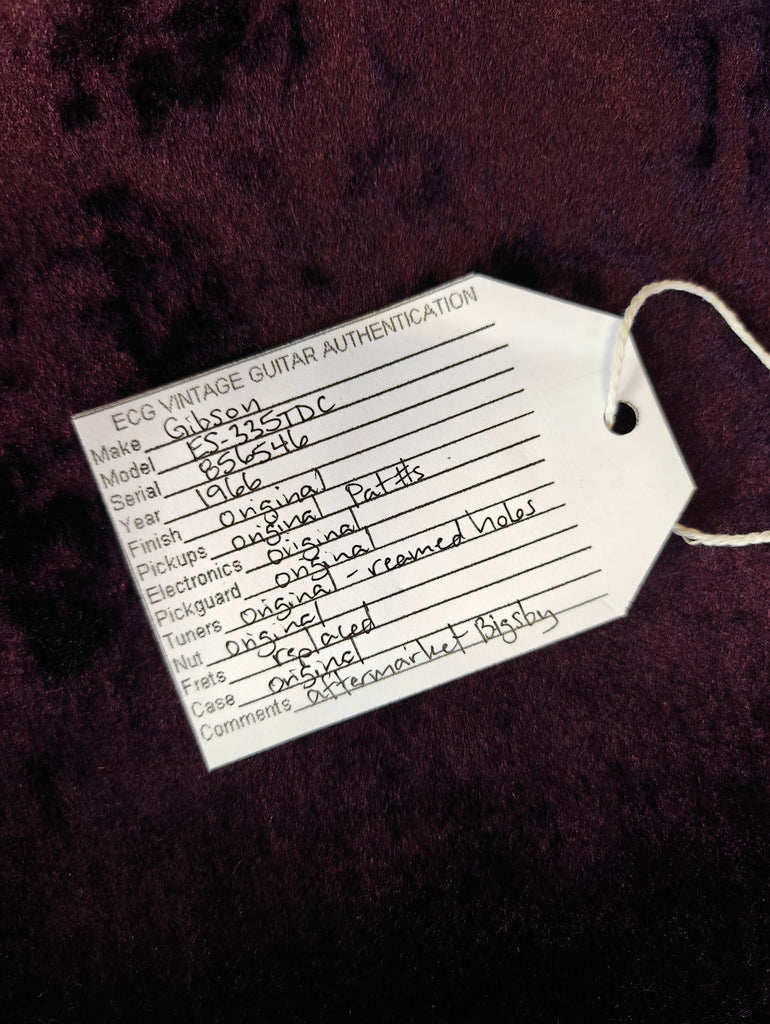 ECG VINTAGE GUITAR AUTHENTICATION
Make Gibson
Model ES-335TDC
Serial 856546
Year 1966
Finish original
Pickups original Pat#s
Electronics original
Pickguard original
Tuners original - reamed holes
Nut original
Frets replaced
Case original
Comments aftermarket Bigsby